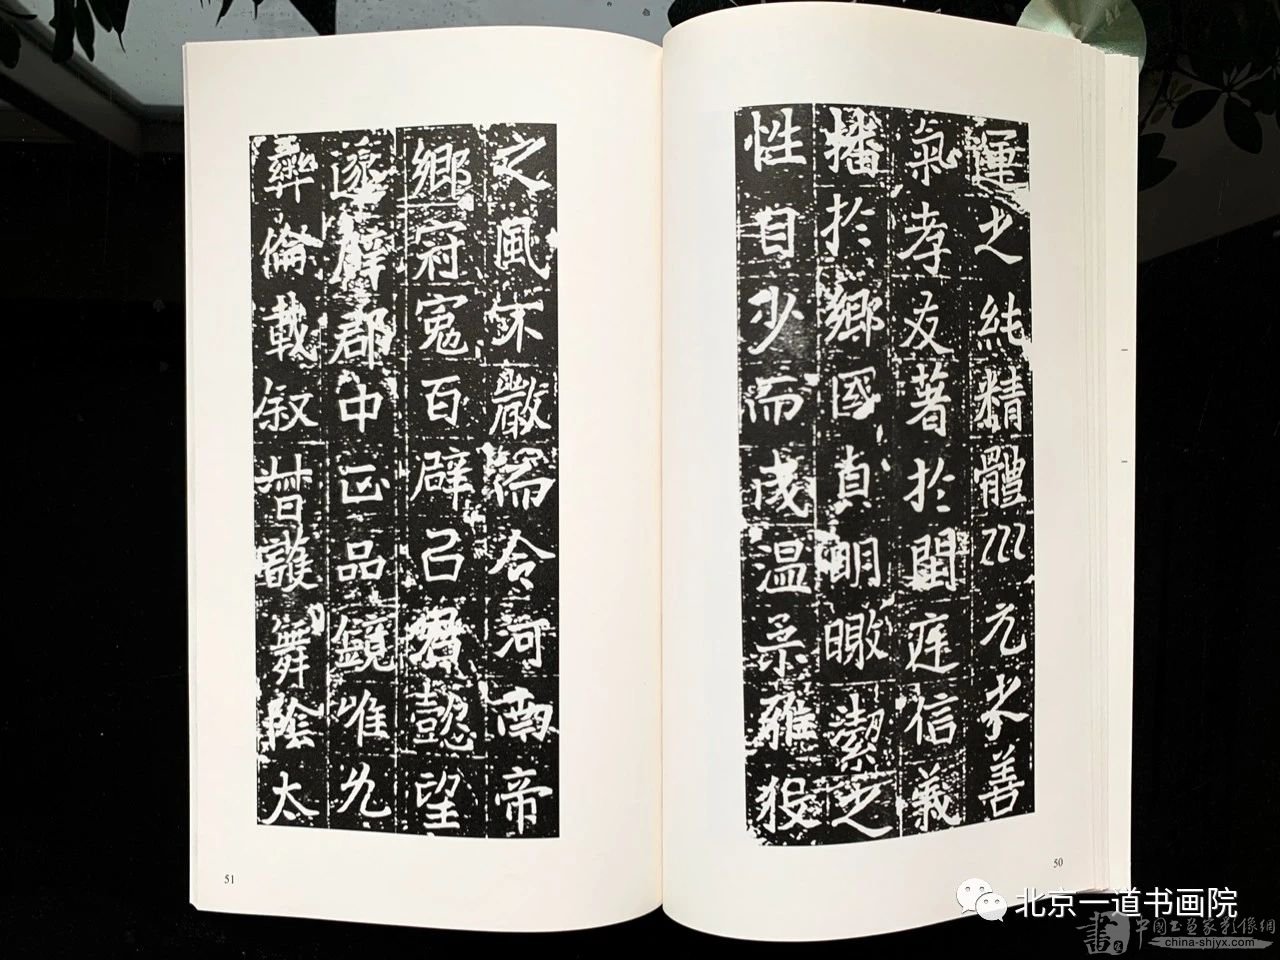 運之純精體川元善
氣孝友著於閨庭信義
播於鄉國貞明曒潔之
性自少而成温柔雅
之風嚴而令河南帝
鄉冠冕百辟懿望
遂辟郡中正品鏡唯允
彝倫載敘昔護舞陰太
51
50
北京一道书画院
中国书画家影像网
china-shjyx.com